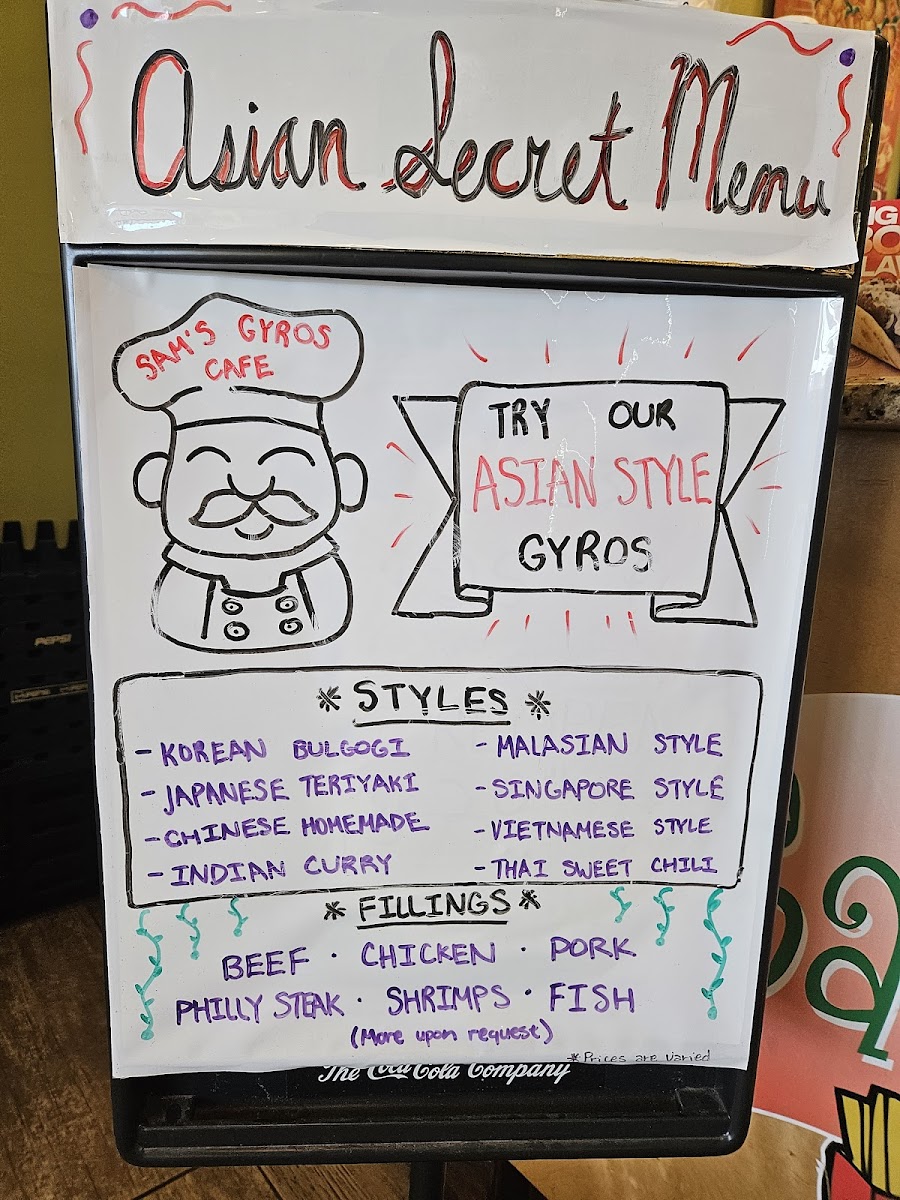 Asian Secret Menu
SAM'S GYROS
CAFE
TRY OUR
ASIAN STYLE
GYROS
* STYLES *
- KOREAN BULGOGI
- JAPANESE TERIYAKI
- CHINESE HOMEMADE
- INDIAN CURRY
- MALASIAN STYLE
- SINGAPORE STYLE
- VIETNAMESE STYLE
- THAI SWEET CHILI
* FILLINGS *
BEEF · CHICKEN · PORK
PHILLY STEAK · SHRIMPS · FISH
(More upon request)
* Prices are varied
The Coca-Cola Company
PEPSI